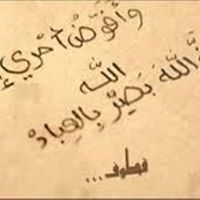 وأفوّضُ أمري إ
الله
نَّ اللَّهَ بَصِيرٌ بِالعِبادْ
قطوف ...